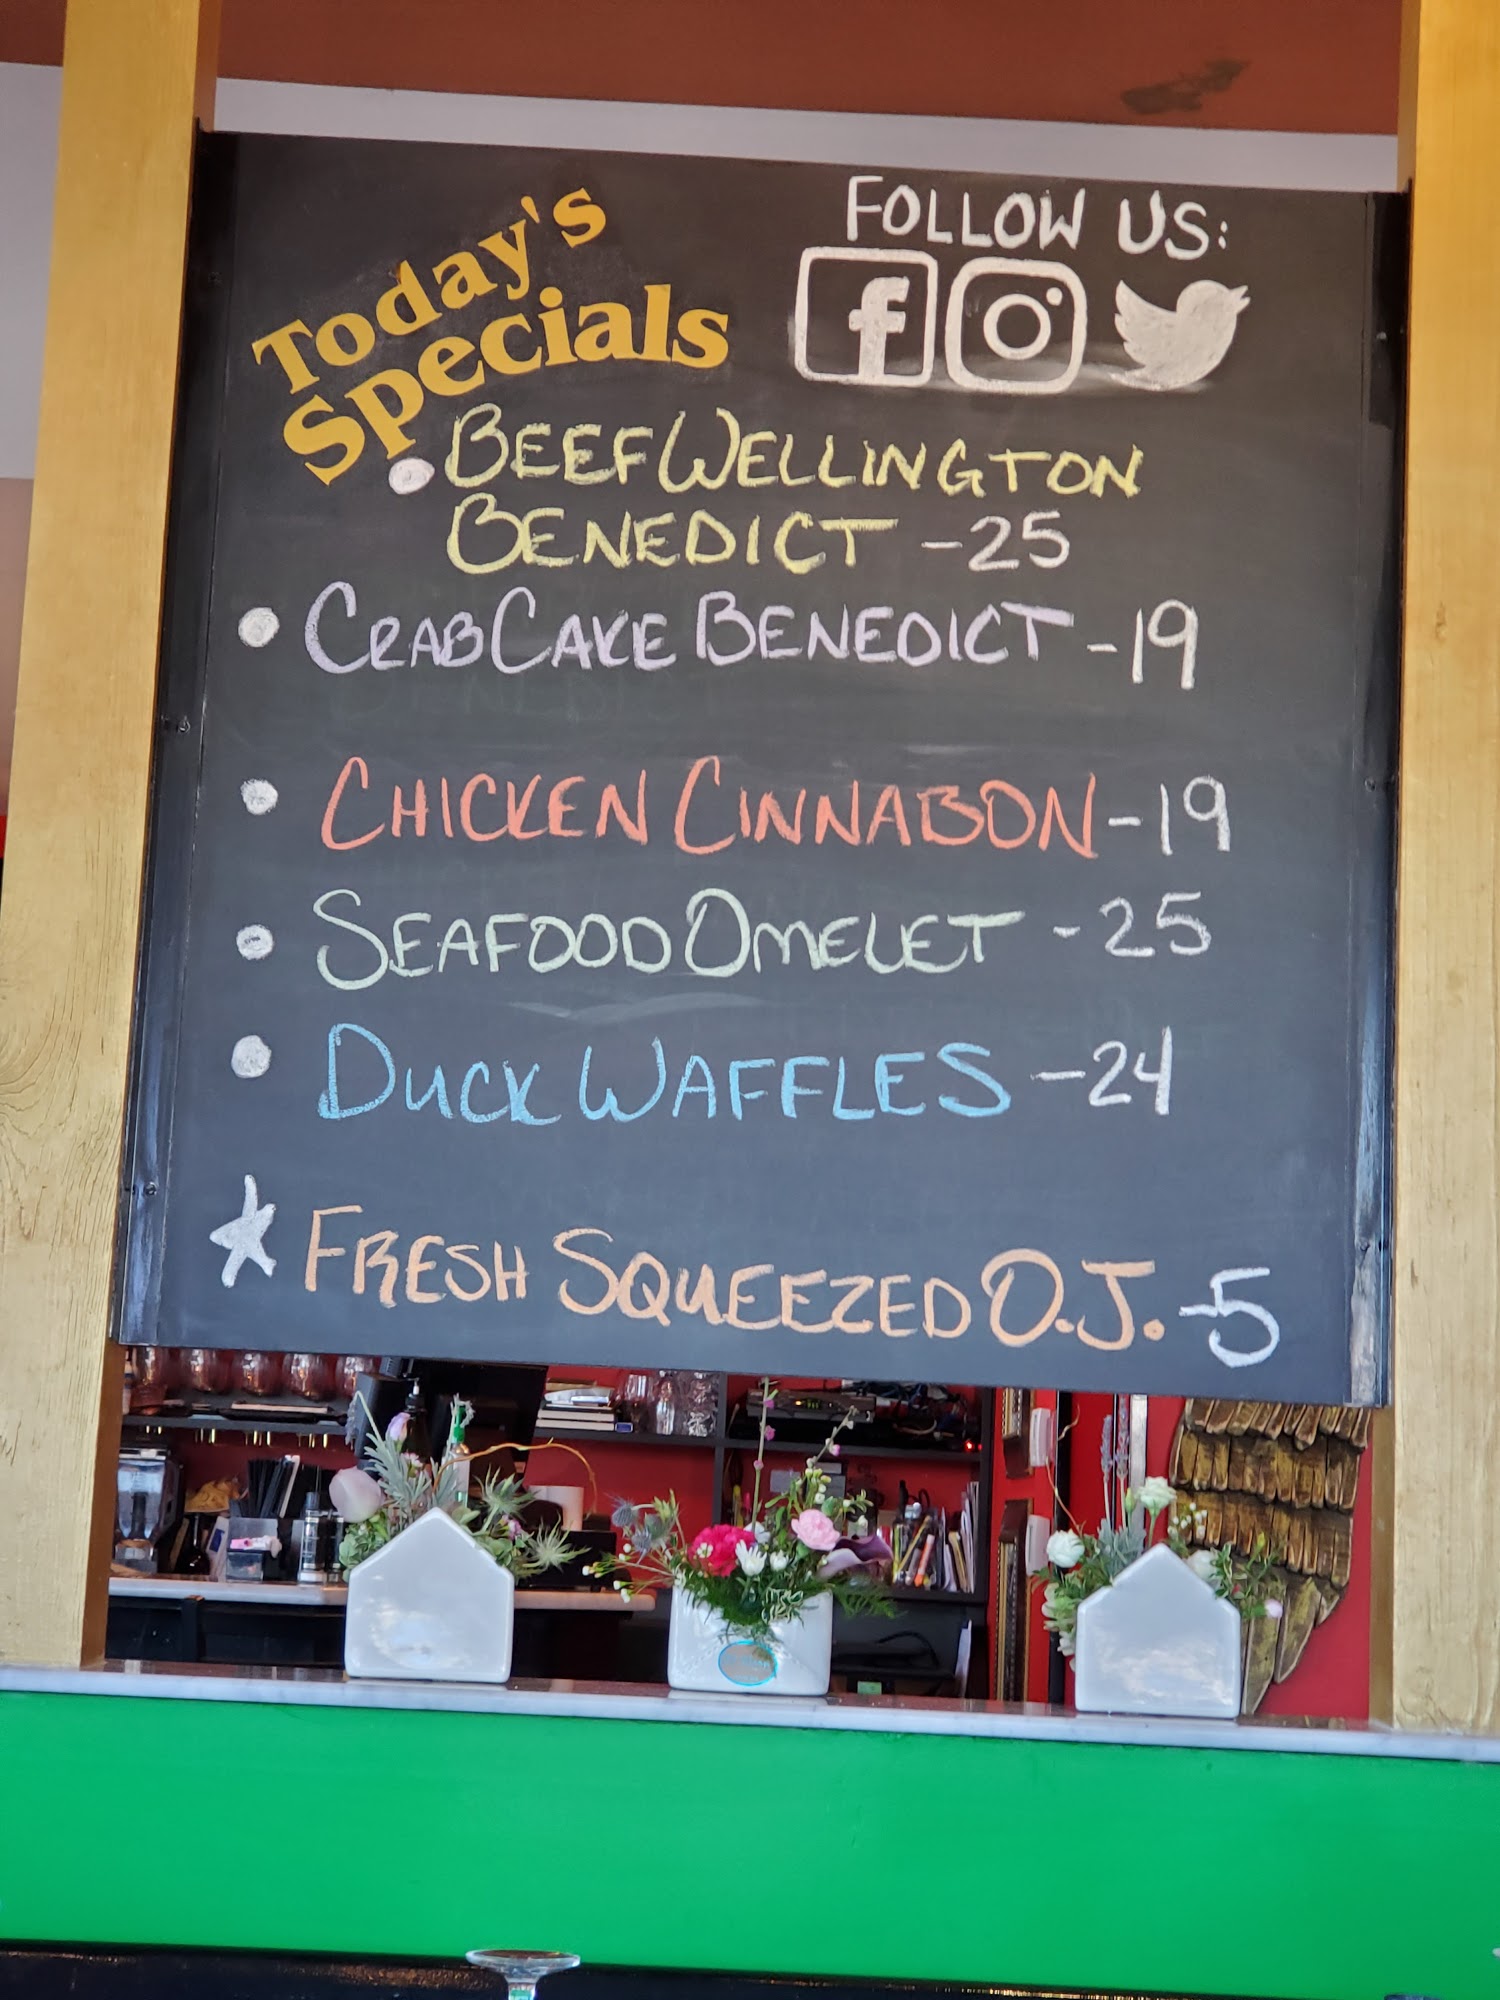 Today's
Specials
FOLLOW US:
BEEF WELLINGTON
BENEDICT -25
CRAB CAKE BENEDICT -19
CHICKEN CINNABON -19
SEAFOOD OMELET -25
DUCK WAFFLES -24
FRESH SQUEEZED O.J. -5